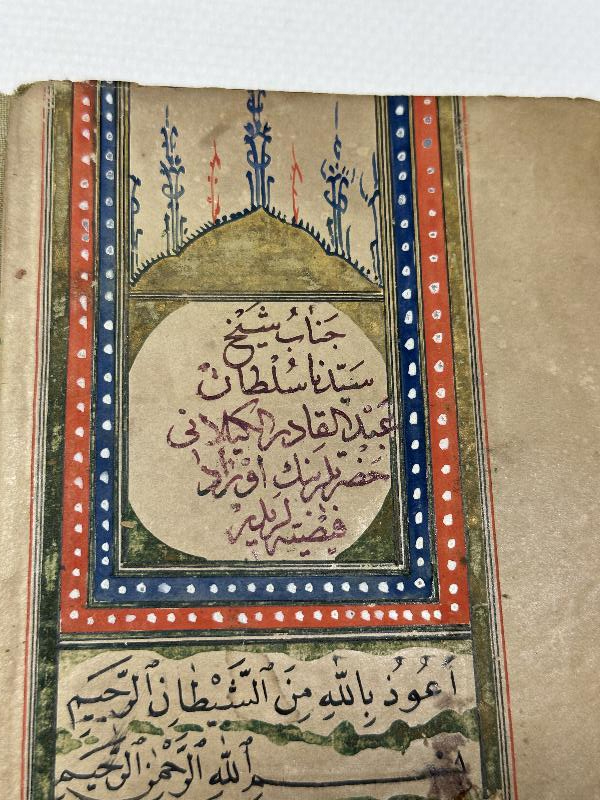 جَنَابُ شَيْخ
سَيِّدْنَا سُلْطَانْ
عَبْدُ الْقَادِرِ الْكَيْلَانِى
حَضْرَتْلَرِينِكْ اَوْرَادِ
اَعُوذُ بِاللّٰهِ مِنَ الشَّيْطَانِ الرَّجِيمِ
بِسْمِ اللّٰهِ الرَّحْمٰنِ الرَّحِيمِ